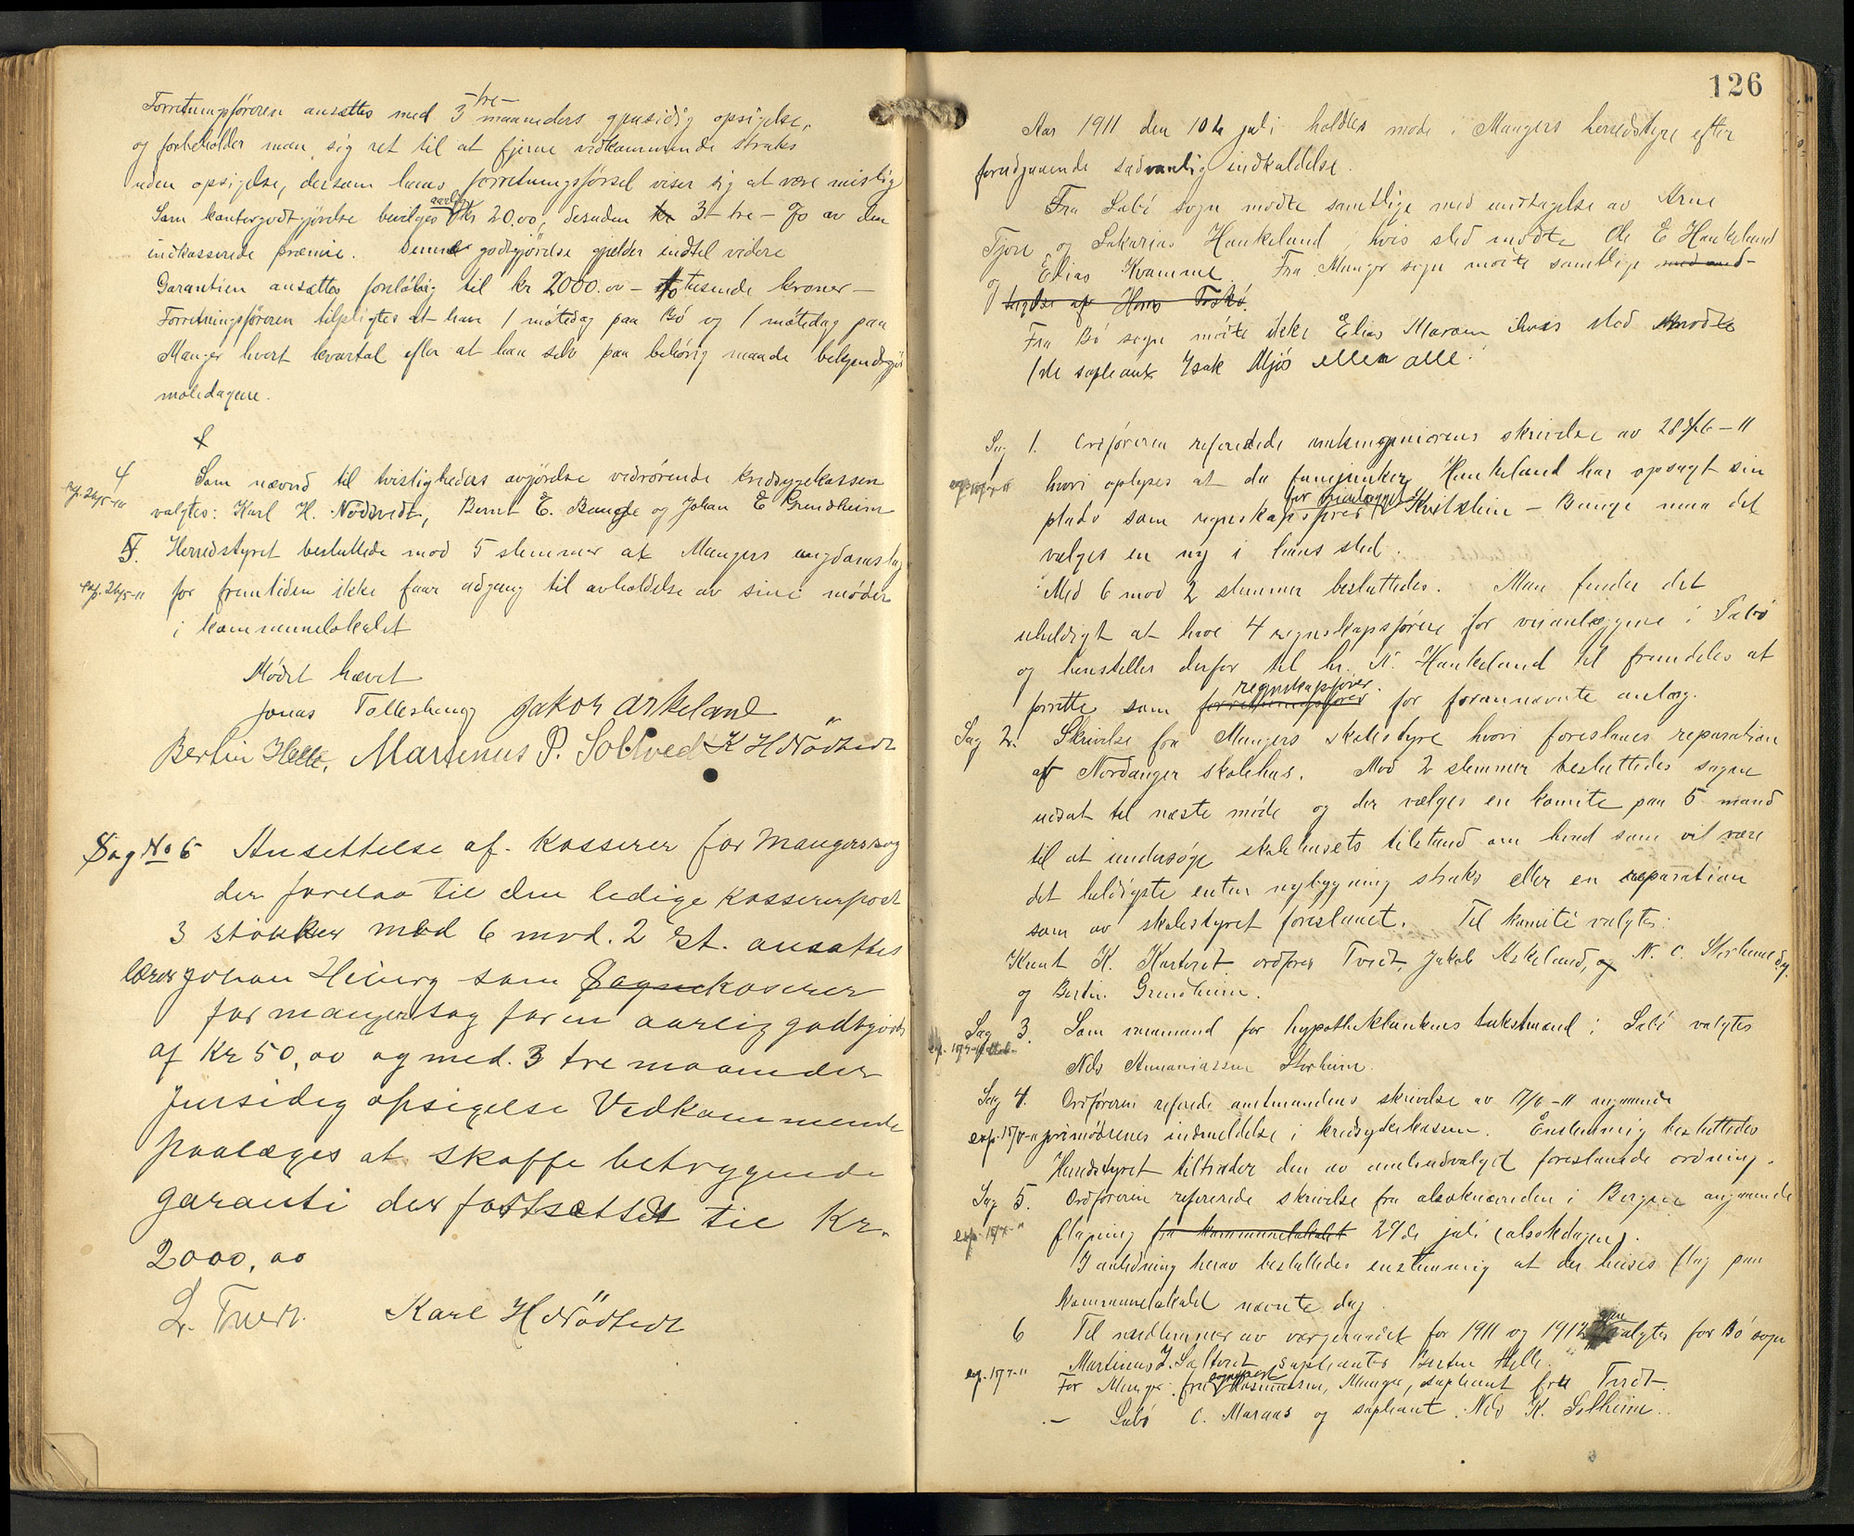 Forretningsføreren ansættes med 3 -tre- maaneders gjensidig opsigelse,
og forbeholder man sig ret til at fjerne vedkommende straks
uden opsigelse, dersom hans forretningsførsel viser sig at være mislig
Som kontorgodtgjörelse bevilges aarlig Kr 20.00, desuden kr 3 - tre - % av den
indkasserede præmie. Denne godtgjörelse gjælder indtil videre
Garantien ansættes foreløbig til kr 2000.00 - to tusende kroner -
Forretningsføreren tilpligtes at han 1 mötedag paa Bö og 1 mötedag paa
Manger hvert kvartal efter at han selv paa behörig maade bekjendtgjör
mötedagene.
4
exp. 26/5-11
Som nævnd til tvistigheders avgjörelse vedrörende kredssygekassen
valgtes: Karl H. Nödtvedt, Bernt E. Bauge og Johan E Grendheim
5. Herredstyret besluttede mod 5 stemmer at Mangers ungdomslag
exp. 26/5-11 for fremtiden ikke faar adgang til avholdelse av sine møder
i kommunelokalet
Mødet hævet
Jonas Tolleshaug Jakob Askeland
Bertin Helle, Martinus P. Soltvedt K H Nödtvedt
Sag No 6 Ansettelse af Kasserer for Mangersog
der forelaa til den ledige kassererpost
3 stökker med 6 mod. 2 st. ansattes
lærer Johan Heimrg som Sognekaserer
for manger sog for en aarlig godtgjörels
af Kr 50,00 og med. 3 tre maaneder
jensidig opsigelse Vedkommende
paalæges at skaffe betryggende
garanti der fastsættes til Kr.
2000,00
L. Tvedt. Karl H Nödtvedt
126
Aar 1911 den 10de juli holdtes møde i Mangers herredstyre efter
foregaaende sædvanlig indkaldelse.
Fra Sæbö sogn mødte samtlige med undtagelse av Arne
Tjore og Sakarias Haukeland, hvis sted mødte Ole E Haukeland
og Elias Kvamme. Fra Manger sogn mødte samtlige med und-
tagelse af Hans Toskö.
Fra Bö sogn mødte ikke Elias Maraen ihvis sted mødte
1ste supleant Isak Mjös ellen alle.
Sag 1. Ordføreren refererede amtsingeniørens skrivelse av 28/6-11
hvori oplyses at da fanejunker Haukeland har opsagt sin
plads som regnskapsfører for veianlægget Kvitstein - Bauge maa det
vælges en ny i hans sted.
Med 6 mod 2 stemmer besluttedes. Man finder det
uheldigt at have 4 regnskapsførere for veianlæggene i Sæbö
og henstiller derfor til hr. N. Haukeland til fremdeles at
forrette som forretningsfører regnskapsfører. for forannævnte anlæg.
Sag 2. Skrivelse fra Mangers skolestyre hvori foreslaaes reparation
af Nordanger skolehus. Mod 2 stemmer besluttedes sagen
udsat til næste møde og der vælges en komite paa 5 mand
til at undersøge skolehusets tilstand om hvad som vil være
det heldigste enten nybygning straks eller en reparation
som av skolestyret foreslaaet. Til komité valgtes:
Knut K. Kartveit ordfører Tvedt, Jakob Askeland, og N. C. Storheim
og Bertin Grendheim.
Sag 3. Som varamand for hypothekbankens takstmænd i Sæbö valgtes
Nils Ananiassen Storheim.
Sag 4. Ordføreren referede amtmandens skrivelse av 17/6-11 angaaende
exp. 18/7-11 jordmødrenes indmeldelse i kredssykekassen. Enstemmig besluttedes
Herredstyret tiltræder den av amtsudvalget foreslaaede ordning.
Sag 5. Ordføreren refererede skrivelse fra olsoknemnden i Bergen angaaende
exp. 18/7-11 flagning fra kommunelokalet 29de juli (olsokdagen).
I anledning herav besluttedes enstemmig at der heises flag paa
kommunelokalet nævnte dag.
6 Til medlemmer av vergeraadet for 1911 og 1912 valgtes for Bö sogn
exp. 18/7-11 Martinus J. Soltveit supleanter Bertin Helle.
For Manger: fru Rasmussen, Manger, supleant fru Tvedt.
- Sæbö C. Maraas og supleant Nils K. Solheim.